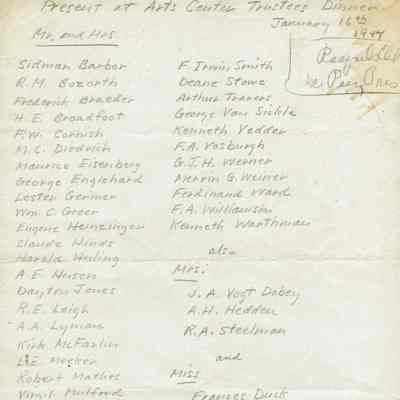 Present at Arts Center Trustees Dinner
January 16th
Mr. and Mrs.
Sidman Barber
R.M. Bozorth
Frederick Braeder
H.E. Broadfoot
F.W. Cornish
M.C. Diedrich
Maurice Eisenberg
George Englehard
Lester Germer
Wm. C. Greer
Eugene Heinzinger
Claude Hinds
Harold Huling
A.E. Husen
Dayton Jones
R.E. Leigh
A.A. Lyman
Kirk McFarlin
L.E. Mecker
Robert Mathes
Virgil Mulford
F. Irwin Smith
Deane Stowe
Arthur Travers
George Van Sickle
Kenneth Vedder
F.A. Vosburgh
G.J.H. Werner
Merrin G. Weiner
Ferdinand Ward
F.A. Williamson
Kenneth Warthman
also
Mrs:
J.A. Vogt Dabey
A.H. Hedden
R.A. Steelman
and
Miss
Frances Duck